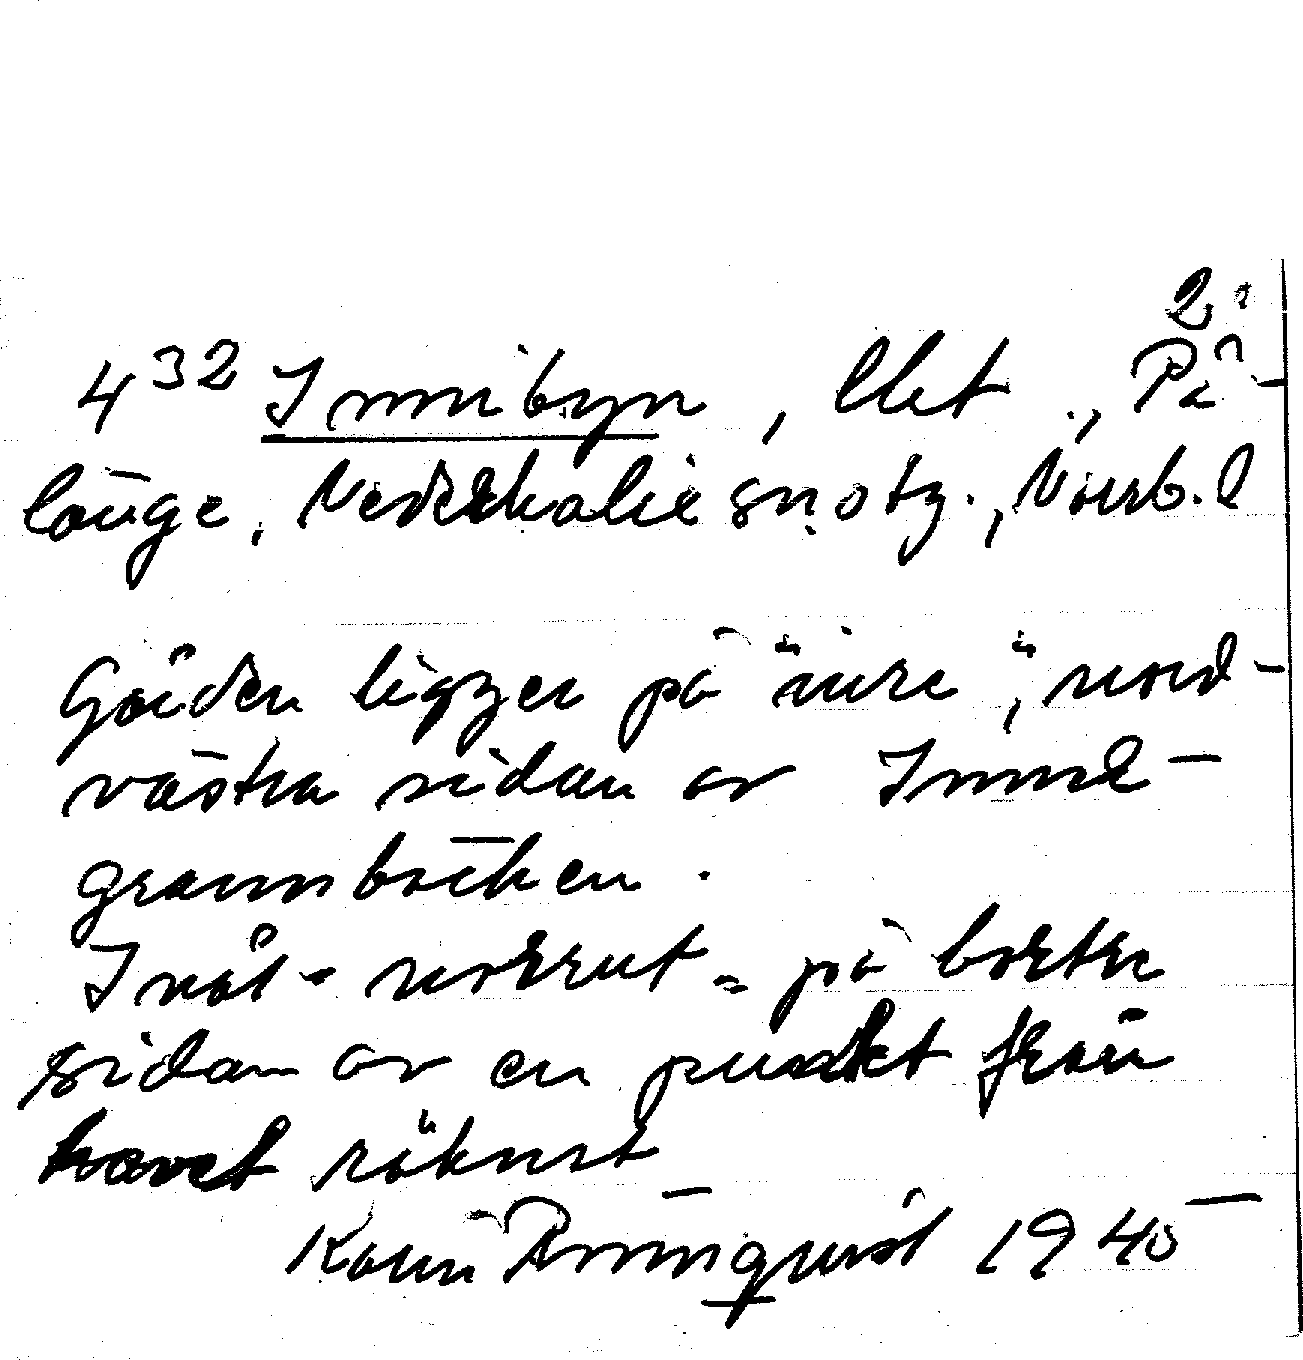 2
4 32 Innibyn, Ulet., På-
länge, Nederkalix snotg., Norrb. l
Gården ligger på "inre", nord-
västra sidan av Inne-
grannbäcken.
Inåt- norrut = på bortre
sidan av en punkt från
havet räknat
Karin Rönnqvist 1945